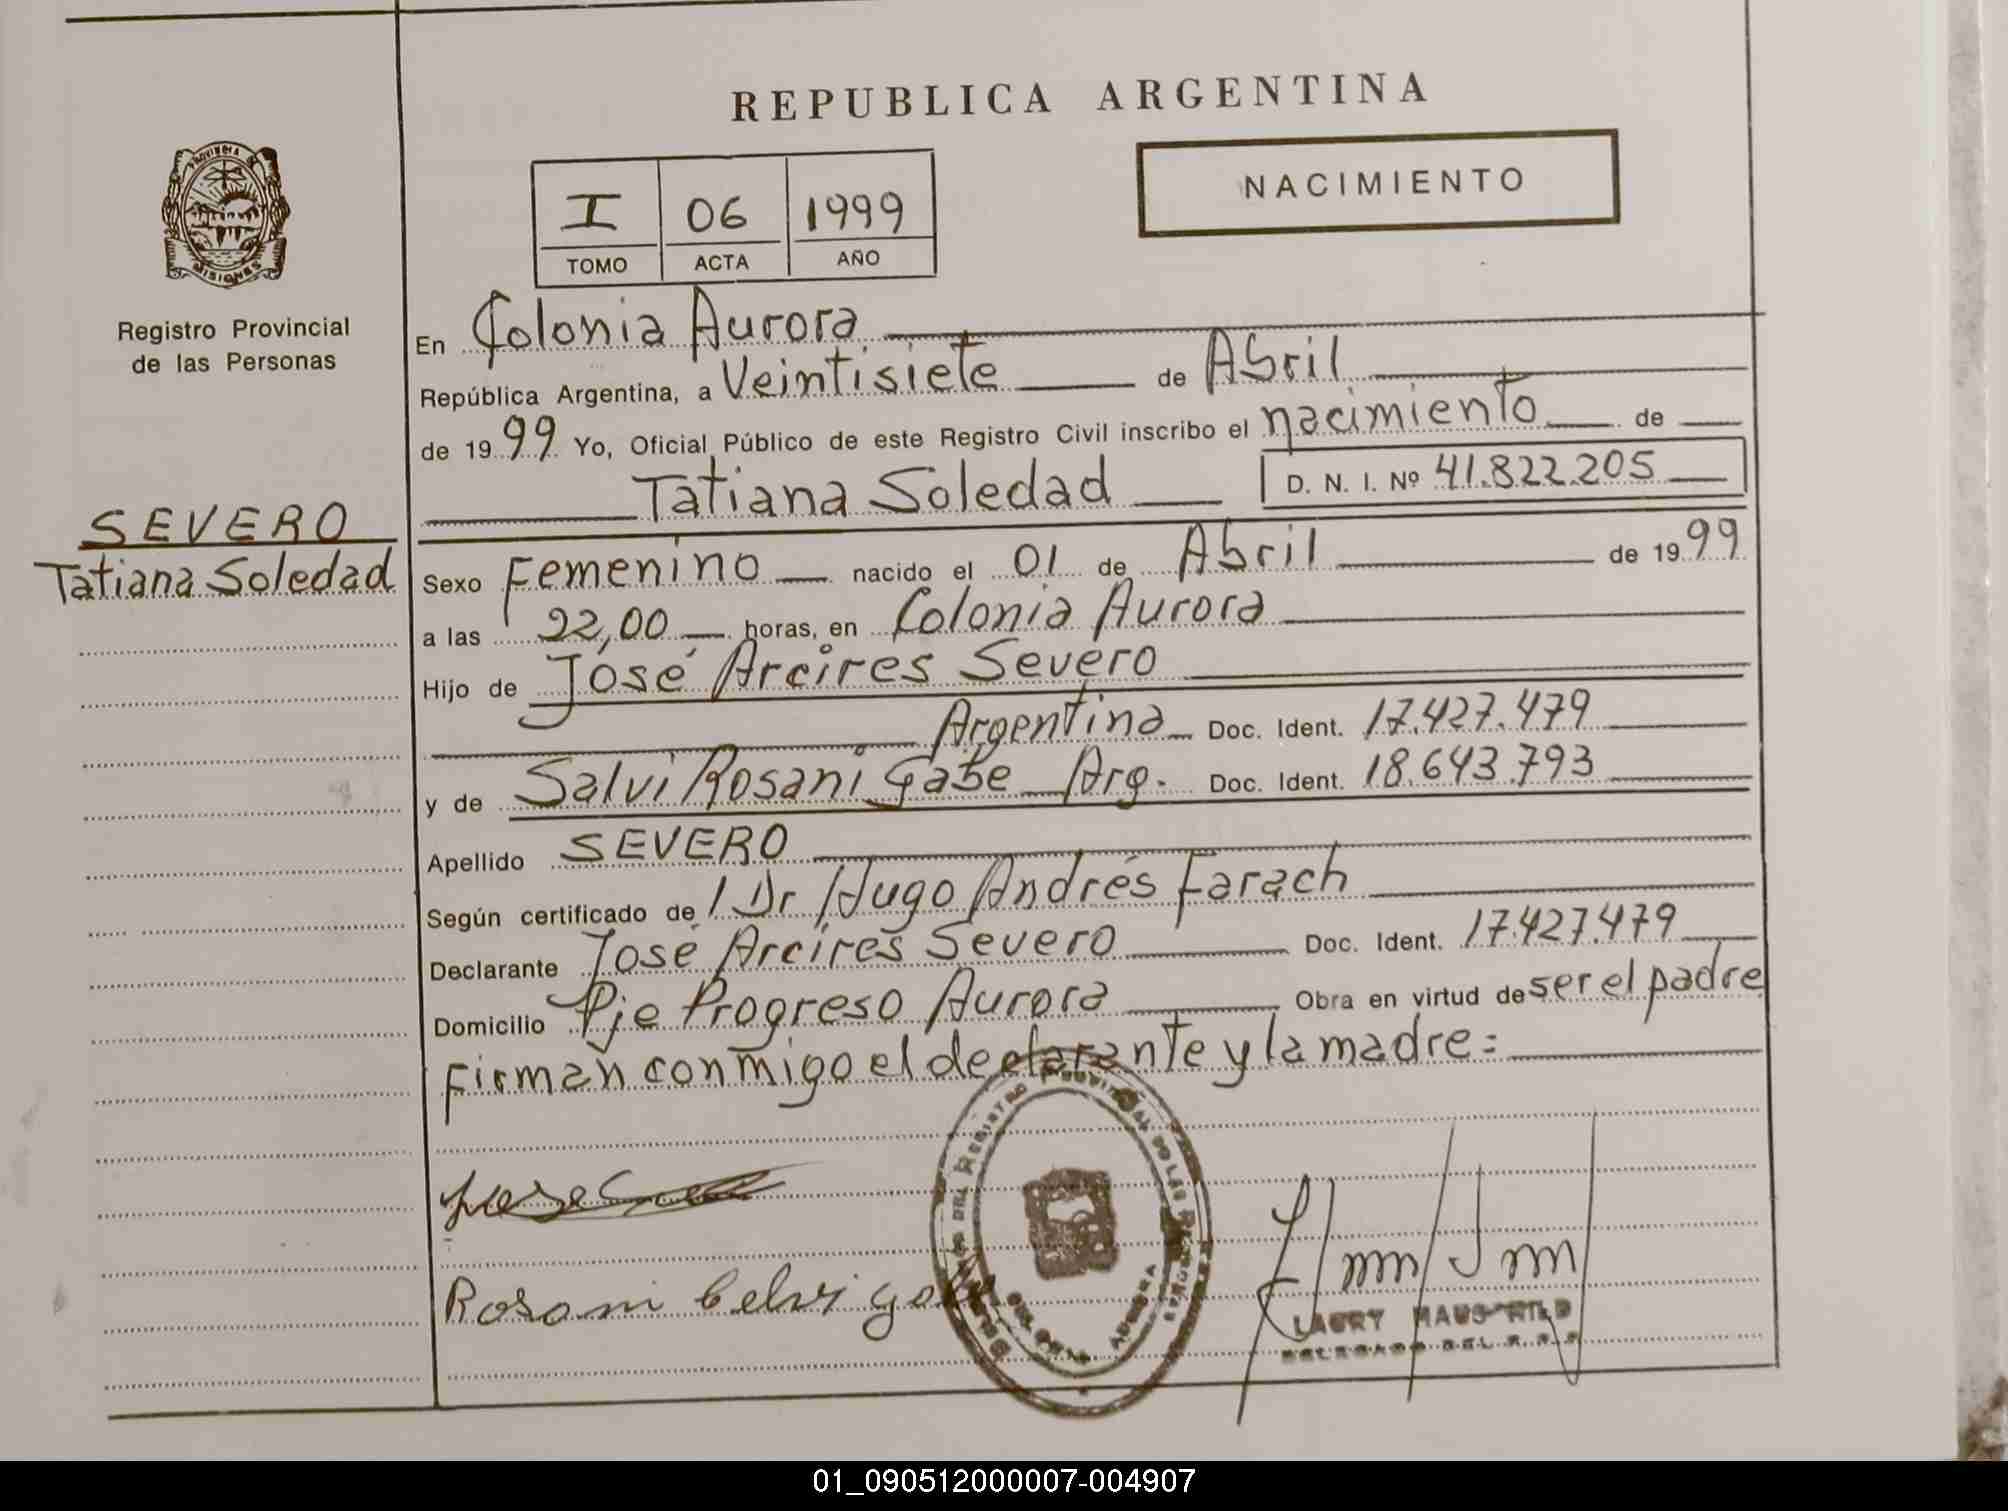 REPUBLICA ARGENTINA
NACIMIENTO
I 06 1999
TOMO ACTA AÑO
PROVINCIA DE
MISIONES
Registro Provincial
de las Personas
SEVERO
Tatiana Soledad
En Colonia Aurora
República Argentina, a Veintisiete de Abril
de 1999 Yo, Oficial Público de este Registro Civil inscribo el nacimiento de
Tatiana Soledad D. N. I. Nº 41.822.205
Sexo Femenino nacido el 01 de Abril de 1999
a las 22,00 horas, en Colonia Aurora
Hijo de José Arcires Severo
Argentina Doc. Ident. 17.427.479
y de Salvi Rosani Gabe Arg. Doc. Ident. 18.643.793
Apellido SEVERO
Según certificado de l Dr Hugo Andrés Farach
Declarante José Arcires Severo Doc. Ident. 17.427.479
Domicilio Pje Progreso Aurora Obra en virtud de ser el padre
Firman conmigo el declarante y la madre=
Jose
Rosani Celvi gabe
REGISTRO PROVINCIAL DE LAS PERSONAS
AURORA
LAURY
DELEGADO DEL R.P.P
01_090512000007-004907